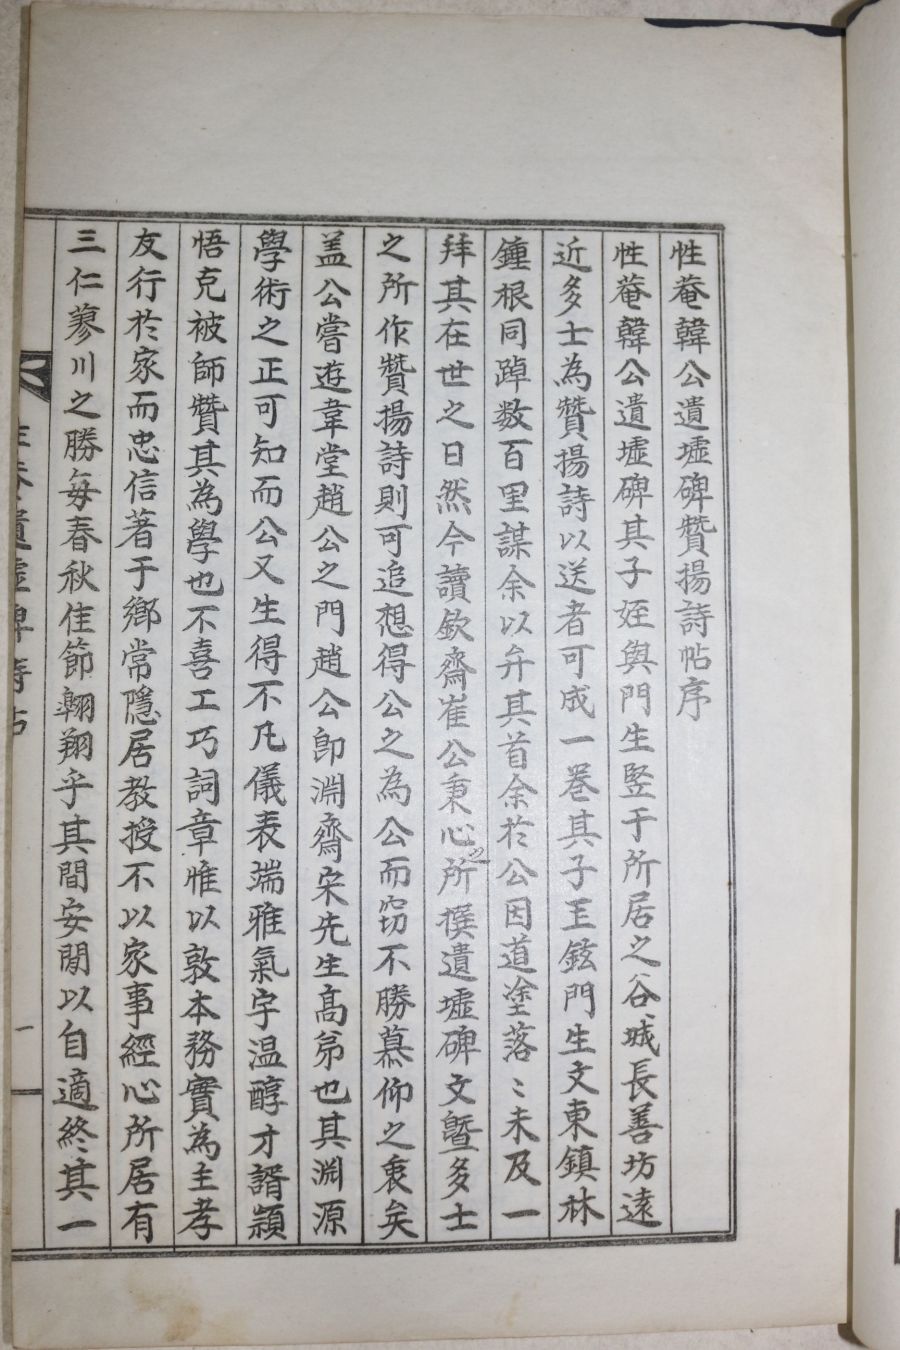 性菴韓公遺墟碑贊揚詩帖序
性菴韓公遺墟碑其子姪與門生竪于所居之谷城長善坊遠
近多士為贊揚詩以送者可成一卷其子玉鉉門生文東鎮林
鍾根同踔数百里謀余以弁其首余於公因道塗落〻未及一
拜其在世之日然今讀欽齋崔公秉心之所撰遺墟碑文曁多士
之所作贊揚詩則可追想得公之為公而窃不勝慕仰之衷矣
盖公嘗遊韋堂趙公之門趙公卽淵齋宋先生高弟也其淵源
學術之正可知而公又生得不凡儀表端雅氣宇温醇才諝穎
悟克被師贊其為學也不喜工巧詞章惟以敦本務實為主孝
友行於家而忠信著于鄉常隱居教授不以家事經心所居有
三仁蓼川之勝每春秋佳節翱翔乎其間安閒以自適終其一
遺墟碑詩帖
一